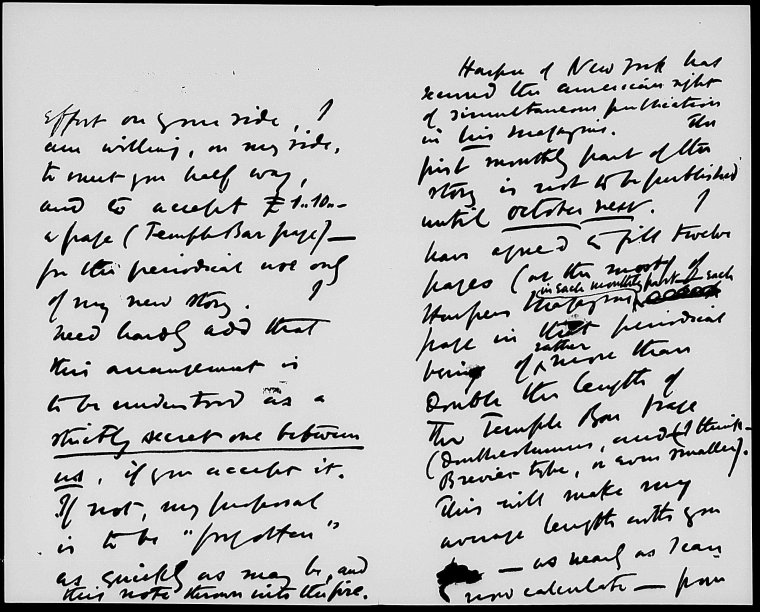 effort on your side, I
am willing, on my side,
to meet you half way,
and to accept £1..10..-
a page (Temple Bar page) —
for the periodical use only
of my new story. I
need hardly add that
this arrangement is
to be understood as a
strictly secret one between
us, if you accept it.
If not, my proposal
is to be "forgotten"
as quickly as may be, and
this note thrown into the fire.
Harper of New York has
secured the american right
of simultaneous publication
in his magazine. The
first monthly part of the
story is not to be published
until october next. I
have agreed to fill twelve
pages (at the most) of
Harpers magazine in each monthly part each
page in that periodical
being of rather more than
Double the length of
The Temple Bar page
(Double columns, and I think
Brevier type, or even smaller).
This will make my
average length with you
— as nearly as I can
now calculate — from